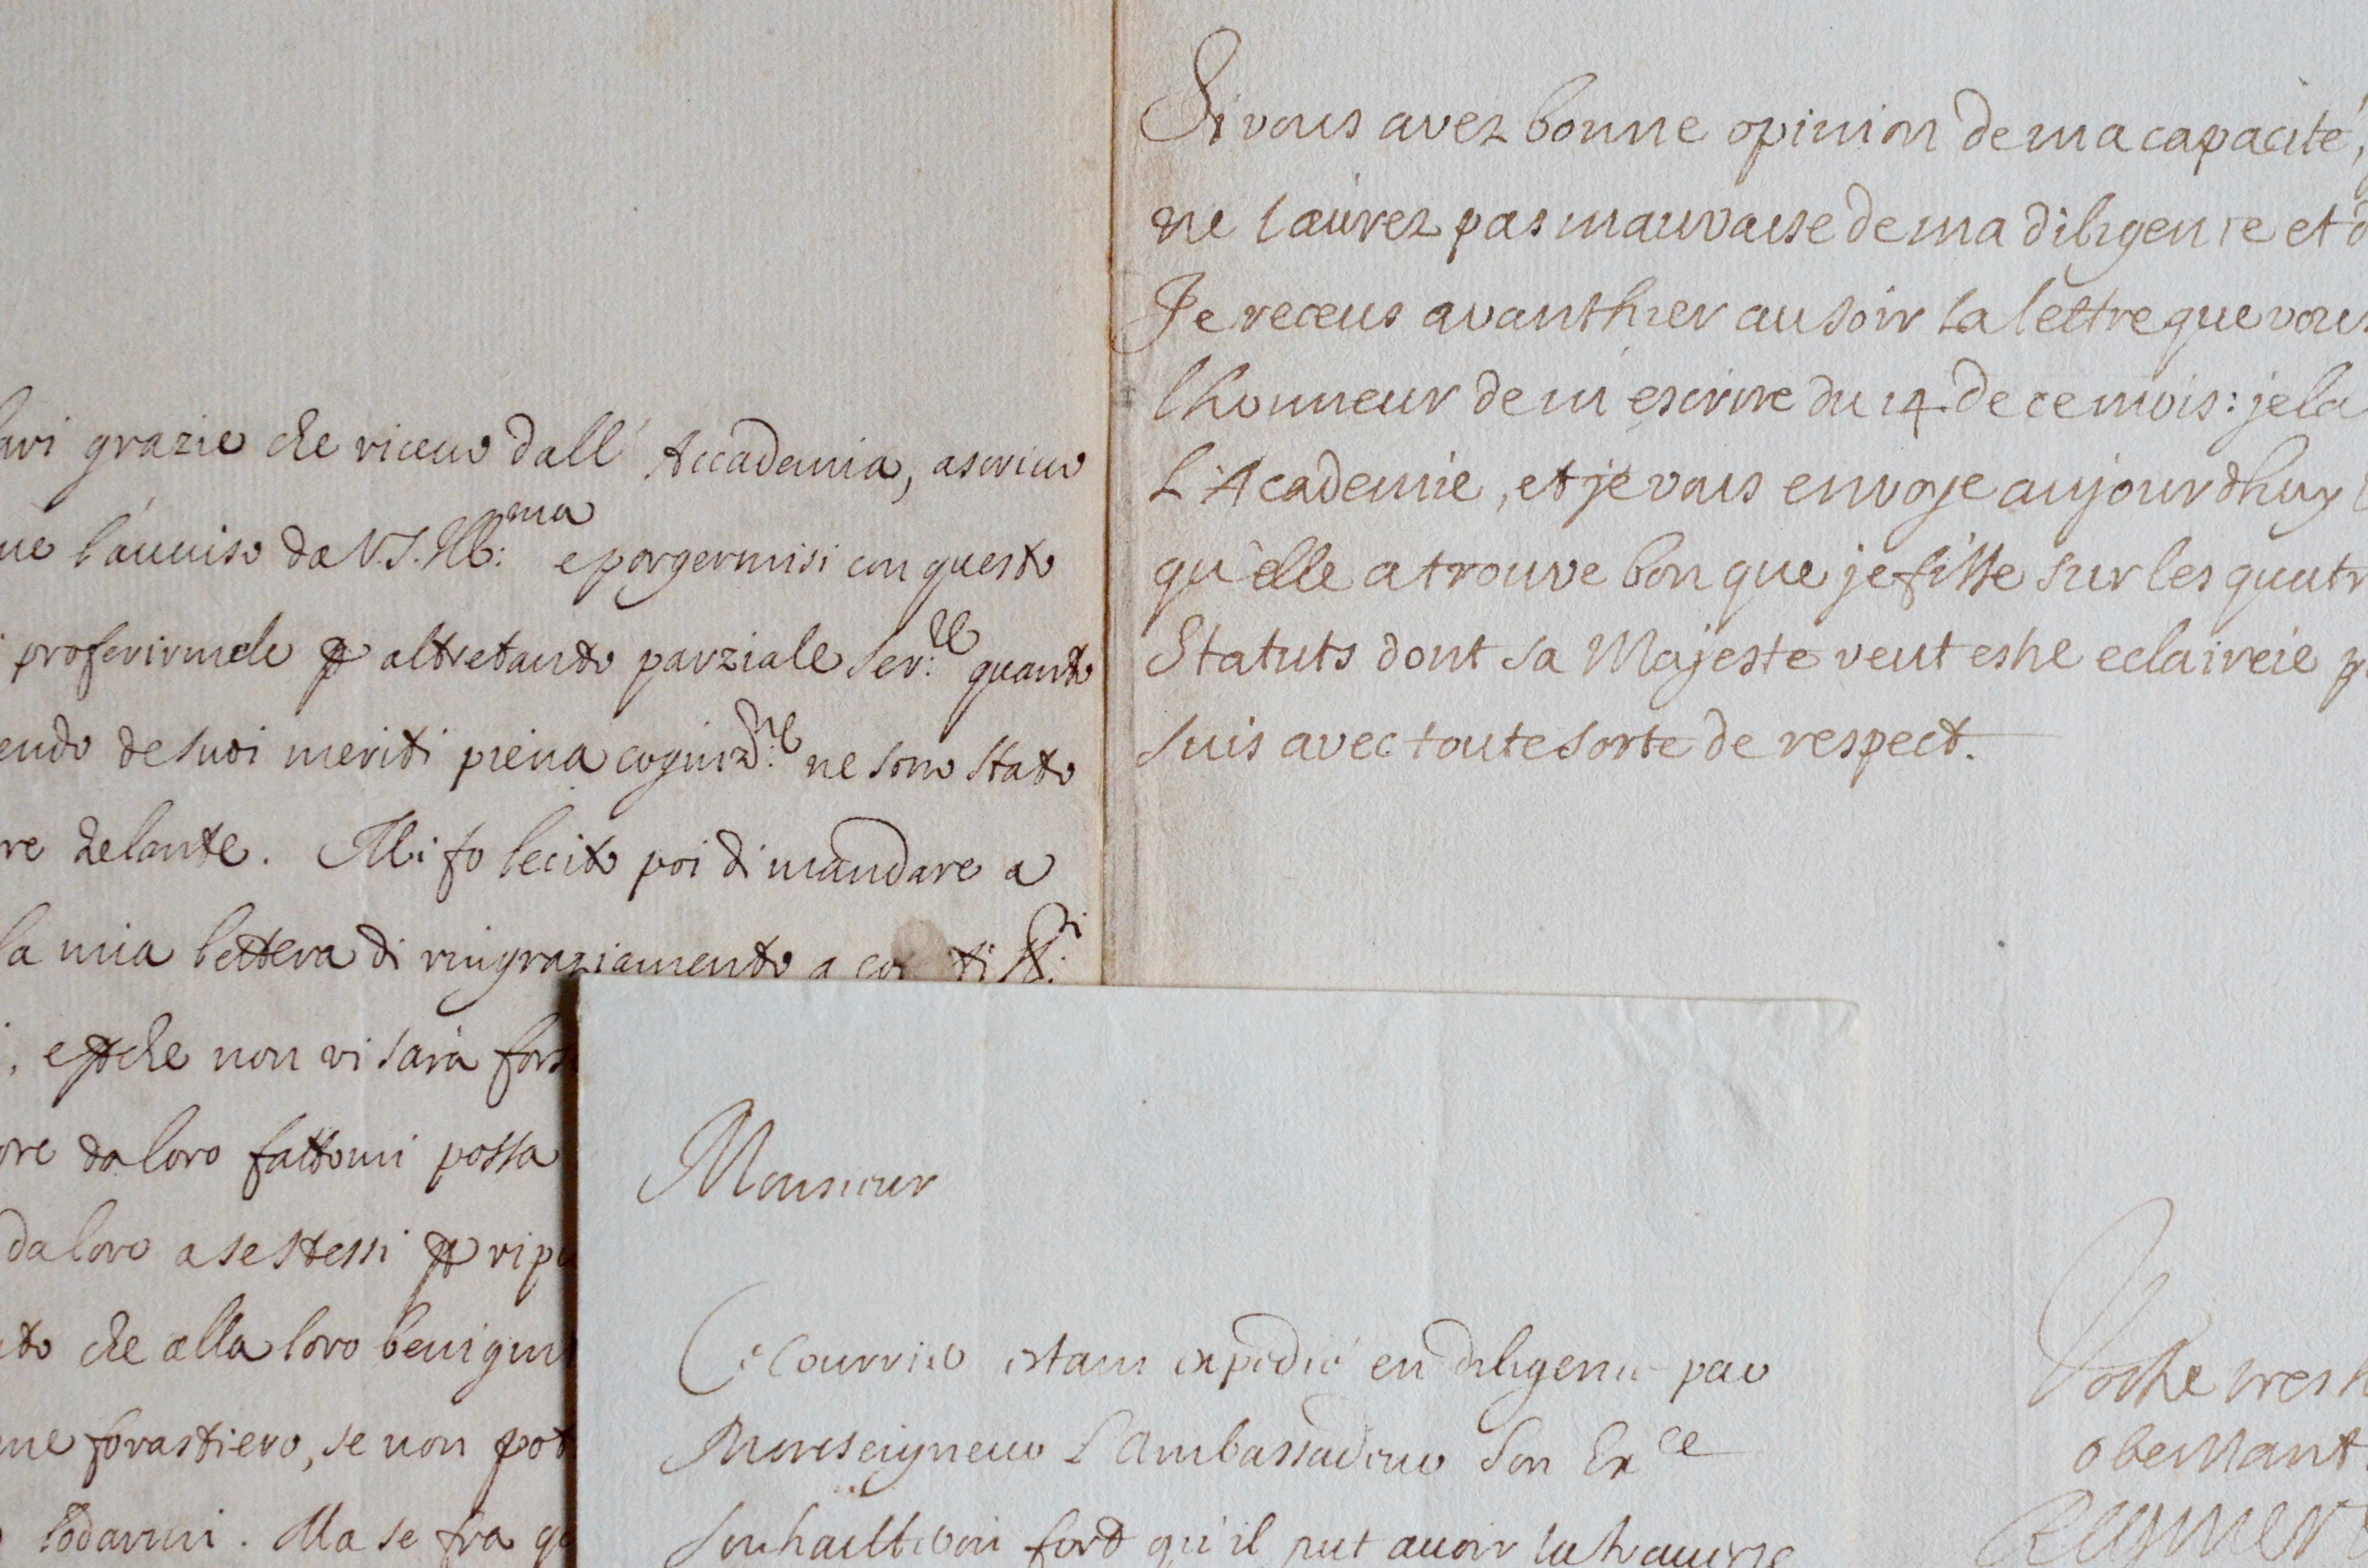 grazie che riceuo dall' Accademia, ascriuo
l'auuiso da V.S. Ill:ma e porgermisi con questo
proferirmele altretanto parziale Ser:le quanto
de suoi meriti piena cogniz:ne ne sono stato
re zelante. Mi fo lecito poi di mandare a
la mia lettera di ringraziamento a
che non vi sarà
ore da loro fattomi possa
da loro a se stessi
che alla loro
me forastiero, se non
lodarmi. Ma se fra
Si vous avez bonne opinion de ma capacité,
ne l'aurez pas mauvaise de ma diligence et
Je receus avanthier au soir la lettre que vous
lhonneur de m'escrire du 14. de ce mois: je la
L'Academie, et je vous envoye aujourdhuy
qu'elle a trouve bon que je fisse sur les
Statuts dont sa Majeste veut estre eclaircie
suis avec toute sorte de respect.
Vostre tres
obeissant
Monsieur
Ce Courrier estant expedié en diligence par
Monseigneur L'ambassadeur Son Exce
fort qu'il put auoir